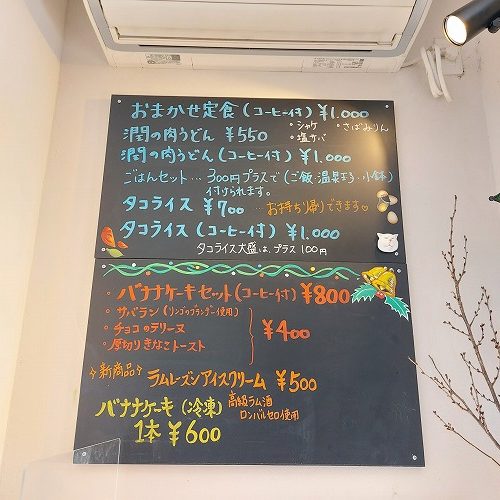 おまかせ定食(コーヒー付)¥1.000
・シャケ ・さばみりん
・塩サバ
潤の肉うどん ¥550
潤の肉うどん(コーヒー付)¥1.000
ごはんセット…300円プラスで(ご飯・温泉玉子・小鉢)
付けられます。
タコライス ¥700 …お持ち帰りできます♡
タコライス(コーヒー付)¥1.000
タコライス大盛は、プラス100円
・バナナケーキセット(コーヒー付)¥800
・サバラン(リンゴのブランデー使用)
・チョコのテリーヌ
・厚切りきなこトースト
¥400
新商品 ラムレーズンアイスクリーム ¥500
バナナケーキ(冷凍)
1本 ¥600
高級ラム酒
ロンバルセロ使用